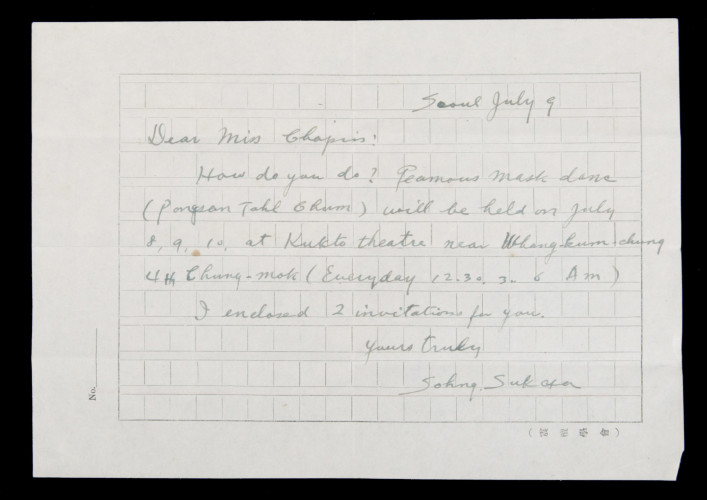 Seoul July 9
Dear Miss Chapin:
How do you do? Feamous mask dance
(Pongsan Tahl Chum) will be held on July
8, 9, 10, at Kukto theatre near Whang-kum-chung
4th Chung-mok (Everyday 12.30, 3. 6 Am)
I enclosed 2 invitations for you.
yours truly
Sohng, Suk
No.